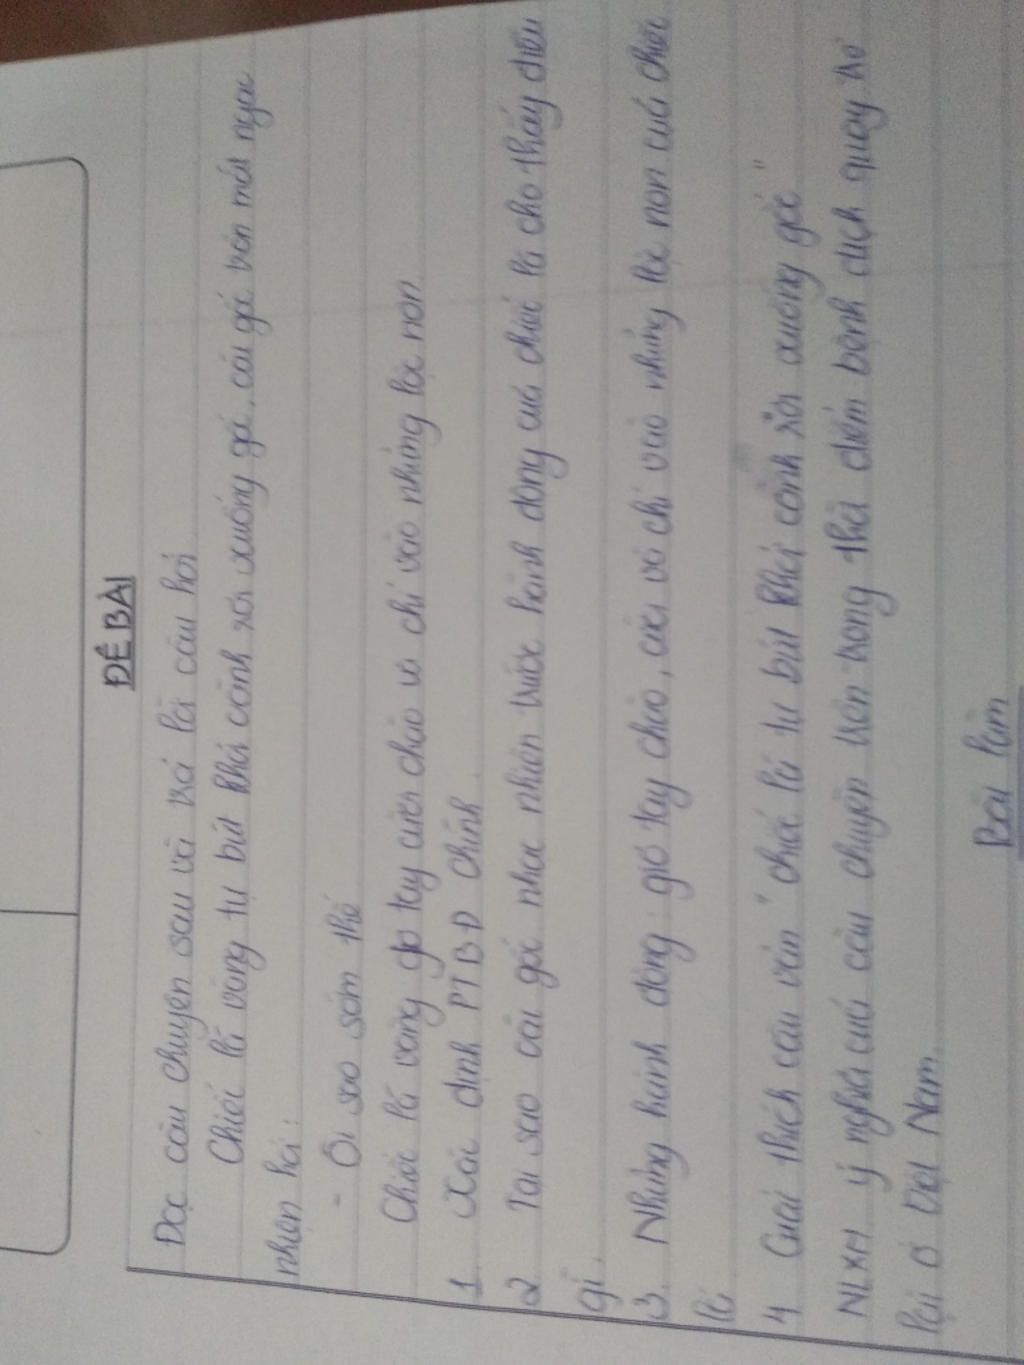 ĐỀ BÀI
Đọc câu chuyện sau và trả lời câu hỏi
Chiếc lá vàng tự bứt khỏi cành rơi xuống gố, cái gốc tròn mắt ngạc
nhiên hỏi:
- Ôi sao sớm thế
Chiếc lá vàng giơ tay cười chào và chỉ vào những lộc non
1. Xác định PTBĐ chính.
2 Tại sao cái gốc nhạc nhiên trước hành động của chiếc lá cho thấy điều
gì.
3. Những hành động: giơ tay chào, cười và chỉ vào những lộc non của chiếc
lá
4 Giải thích câu văn "chiếc lá tự bứt khỏi cành rơi xuống gốc"
NLXH ý nghĩa của câu chuyện trên trong thời điểm bệnh dịch quay trở
lại ở Việt Nam.
Bài làm